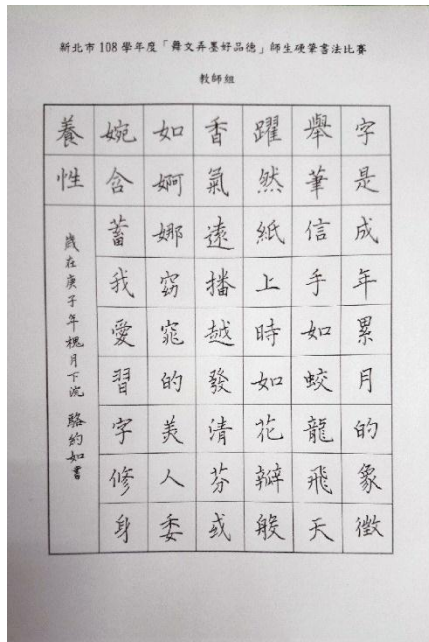 新北市 108 學年度「舞文弄墨好品德」師生硬筆書法比賽
教師組
字是成年累月的象徵
舉筆信手如蛟龍飛天
躍然紙上時如花瓣般
香氣遠播越發清芬或
如婀娜窈窕的美人委
婉含蓄我愛習字修身
養性
歲在庚子年槐月下浣 駱約如書